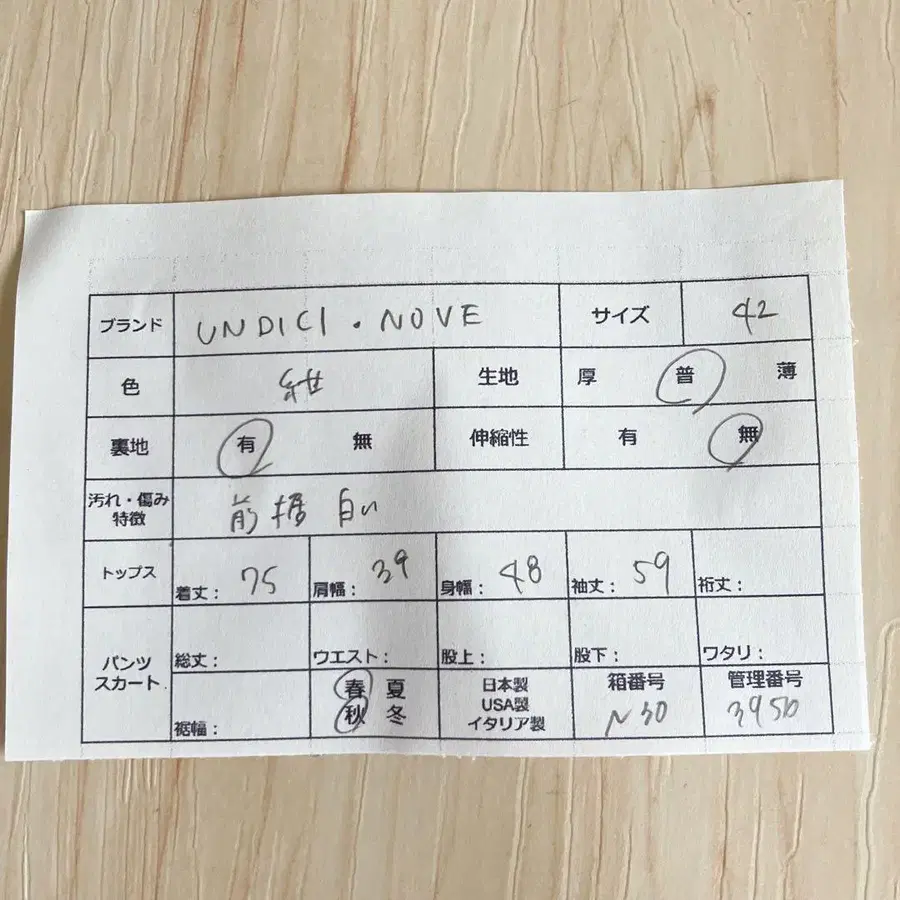 ブランド UNDICI・NOVE サイズ 42
色 紺 生地 厚 普 薄
裏地 有 無 伸縮性 有 無
汚れ・傷み
特徴 前裾 白い
トップス 着丈: 75 肩幅: 39 身幅: 48 袖丈: 59 裄丈:
パンツ
スカート 総丈: ウエスト: 股上: 股下: ワタリ:
裾幅: 春 夏
秋 冬
日本製
USA製
イタリア製
箱番号
N30
管理番号